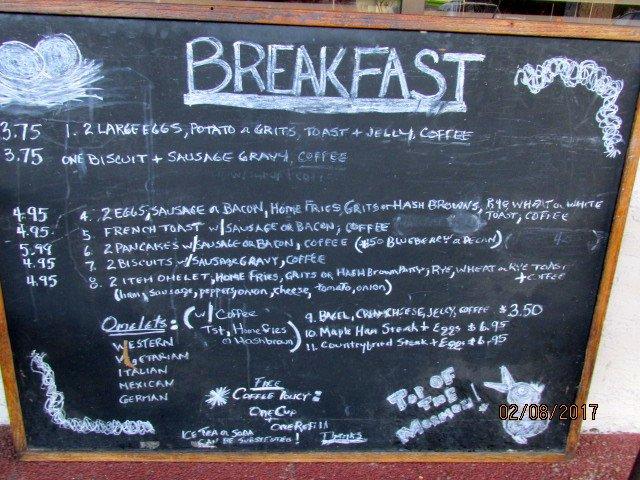 BREAKFAST
3.75 1. 2 LARGE EGGS, POTATO or GRITS, TOAST + JELLY, COFFEE
3.75 ONE BISCUIT + SAUSAGE GRAVY, COFFEE
4.95 4. 2 EGGS, SAUSAGE or BACON, HOME FRIES, GRITS or HASH BROWNS, RYE, WHEAT or WHITE
TOAST, COFFEE
4.95 5. FRENCH TOAST w/ SAUSAGE or BACON, COFFEE
5.99 6. 2 PANCAKES w/ SAUSAGE or BACON, COFFEE ($.50 BLUEBERRY or PECAN)
4.95 7. 2 BISCUITS w/ SAUSAGE GRAVY, COFFEE
4.95 8. 2 ITEM OMELET, HOME FRIES, GRITS or HASH Brown Patty, RYE, WHEAT or RYE TOAST
+ COFFEE
(ham, sausage, peppers, onion, cheese, tomato, onion)
Omelets: (w/ Coffee
Tst, Home fries
or Hashbrown)
WESTERN
VEGETARIAN
ITALIAN
MEXICAN
GERMAN
9. BAGEL, CREAM CHEESE, JELLY, COFFEE $3.50
10. Maple Ham Steak + Eggs $6.95
11. Country fried Steak + Eggs $6.95
FREE
COFFEE POLICY:
ONE CUP
ONE REFILL
ICE TEA or SODA
CAN BE SUBSTITUTED! Thanks
TOP OF
THE
MORNING!
02/08/2017